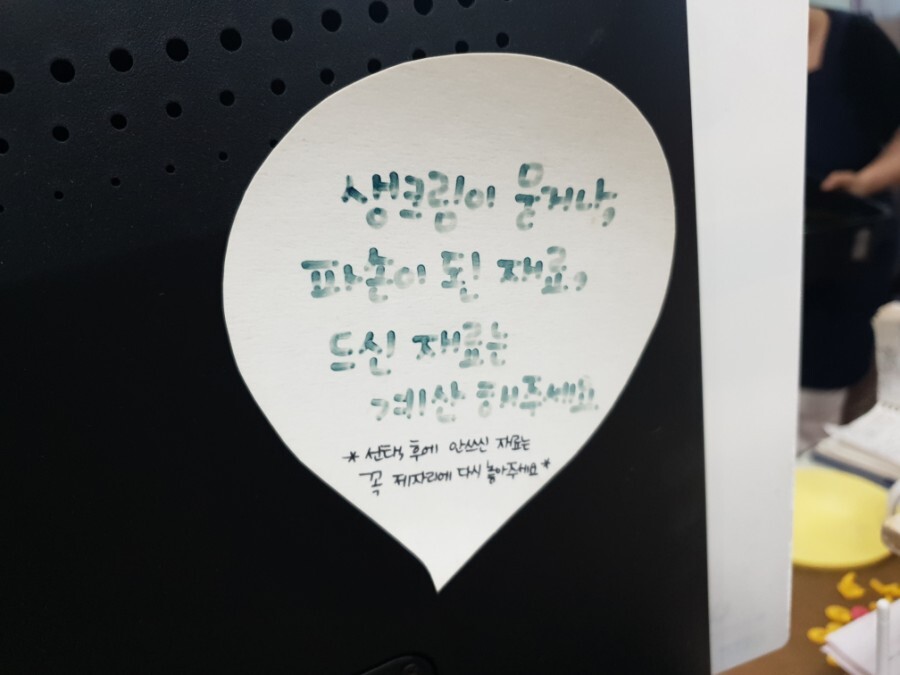 생크림이 묻거나,
파손이 된 재료,
드신 재료는
계산 해주세요
* 선택 후에 안쓰신 재료는
꼭 제자리에 다시 놓아주세요 *